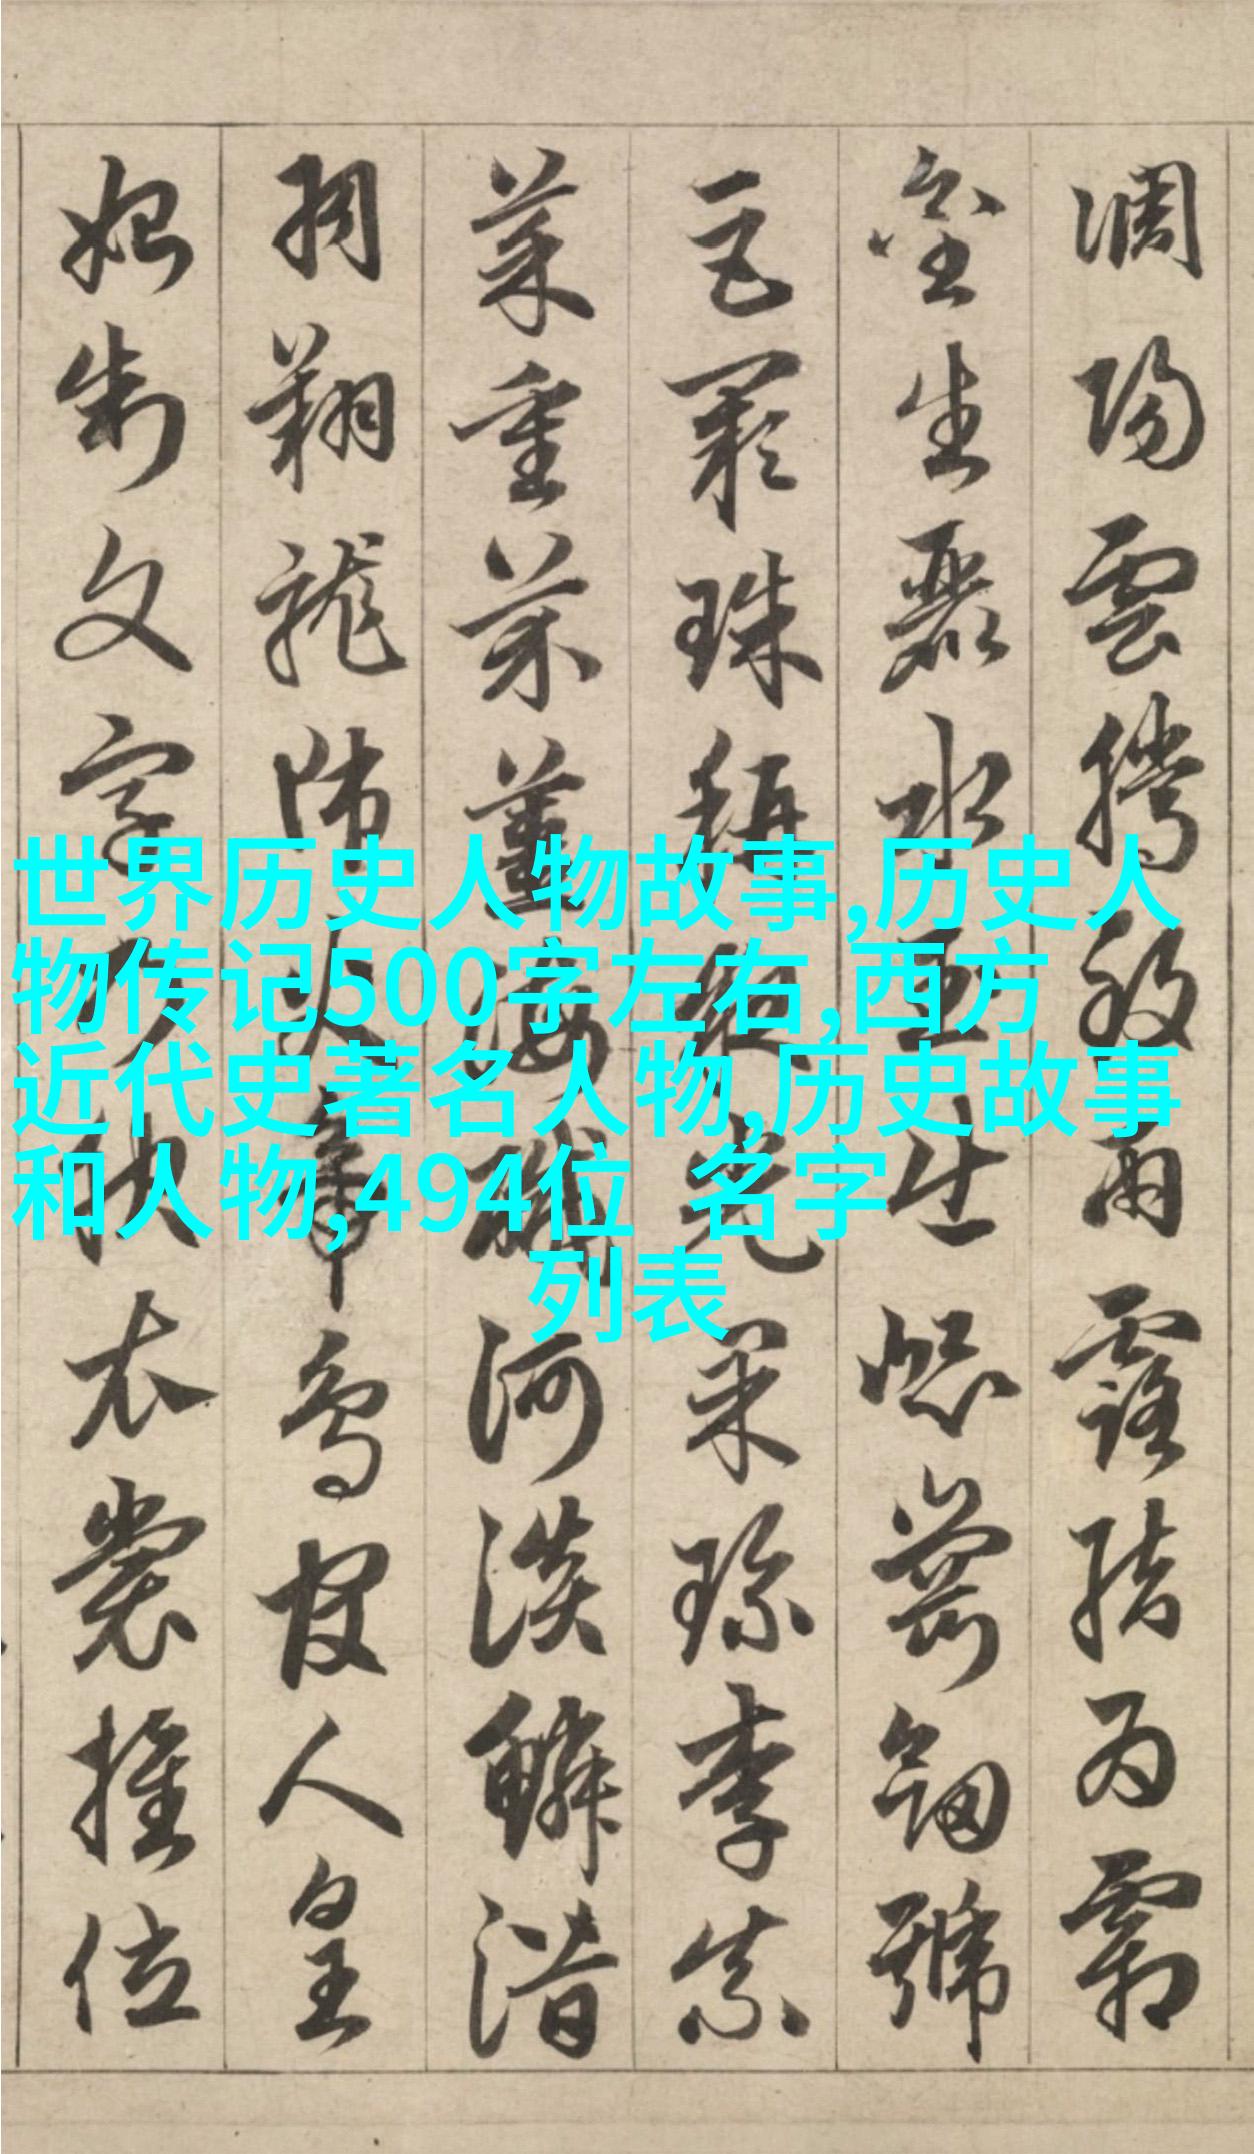 調陽雲騰致雨露結為霜
金生麗水玉出崑岡劍號
巨闕珠稱夜光果珍李柰
菜重芥薑海鹹河淡鱗潛
羽翔龍師火帝鳥官人皇
始制文字乃服衣裳推位
世界历史人物故事,历史人
物传记500字左右,西方
近代史著名人物,历史故事
和人物,494位 名字
列表